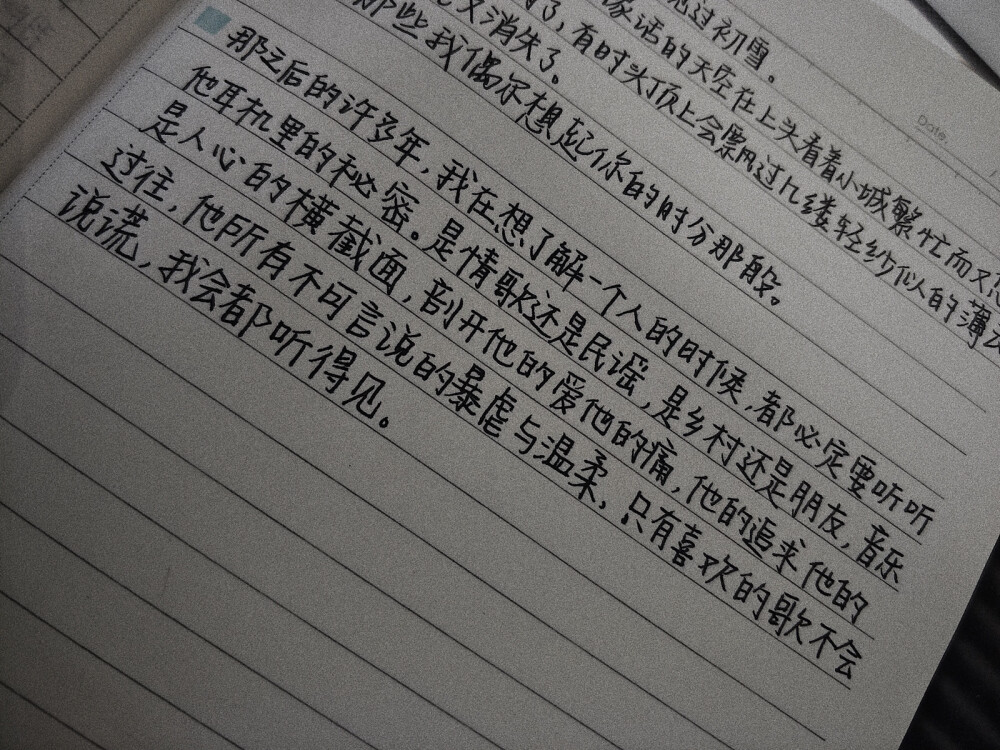 过初雪。
Date.
话的天空在上头看着小城繁忙而又
了，有时头顶上会飘过几缕轻纱似的薄
又消失了。
那些我偶尔想起你的时分那般。
那之后的许多年，我在想了解一个人的时候，都必定要听听
他耳机里的秘密。是情歌还是民谣，是乡村还是朋友，音乐
是人心的横截面，剖开他的爱他的痛，他的追求他的
过往，他所有不可言说的暴虐与温柔，只有喜欢的歌不会
说谎，我会都听得见。